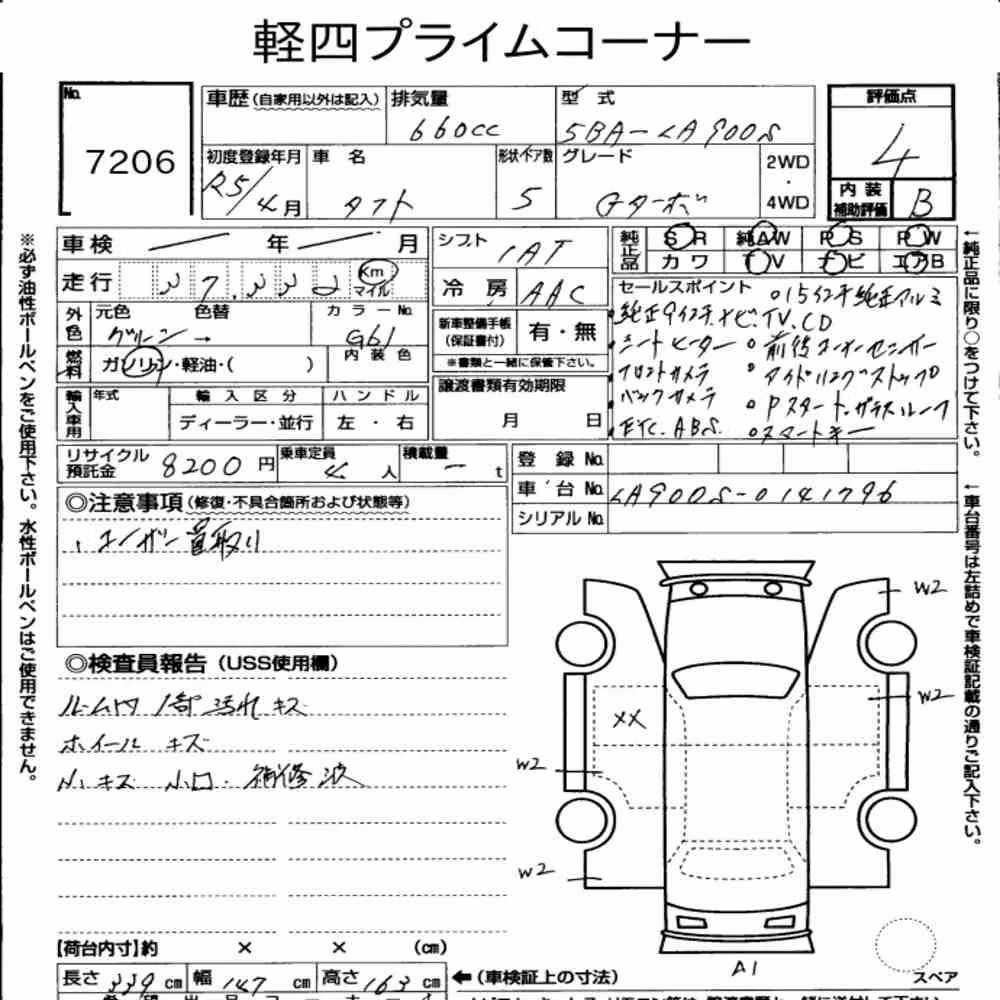 軽四プライムコーナー
No. 7206
車歴(自家用以外は記入) 排気量 660cc
型式 5BA-LA900S
評価点 4
内装補助評価 B
初度登録年月 R5/4月
車名 タフト
形状・ドア数 5
グレード Gターボ
2WD・4WD
車検 年 月
走行 37,332 Km マイル
シフト IAT
冷房 AAC
純正品 SR 純AW PS PW
カワ TV ナビ エアB
外色 元色 グリーン → 色替 カラーNo. G61
燃料 ガソリン・軽油・( ) 内装色
輸入車用 年式 輸入区分 ディーラー・並行 ハンドル 左・右
新車整備手帳(保証書付) 有・無
※書類と一緒に保管下さい。
譲渡書類有効期限 月 日
セールスポイント 。15インチ純正アルミ
純正9インチナビ.TV.CD
シートヒーター 。前後コーナーセンサー
フロントカメラ 。アイドリングストップ
バックカメラ 。Pスタート.ガラスルーフ
ETC.ABS. 。スマートキー
リサイクル預託金 8200円 乗車定員 4人 積載量 ー t
登録No.
車台No. LA900S-0141796
シリアルNo.
◎注意事項(修復・不具合箇所および状態等)
、コーナー 首取り
◎検査員報告(USS使用欄)
ルーム内 1部 汚れ キズ
ホイール キズ
小キズ 小凹・補修波
W2
W2
XX
W2
W2
A1
スペア
【荷台内寸】約 × × (cm)
長さ 339 cm 幅 147 cm 高さ 163 cm ←(車検証上の寸法)
※必ず油性ボールペンをご使用下さい。水性ボールペンはご使用できません。
←純正品に限り○をつけて下さい。
←車台番号は左詰めで車検証記載の通りご記入下さい。